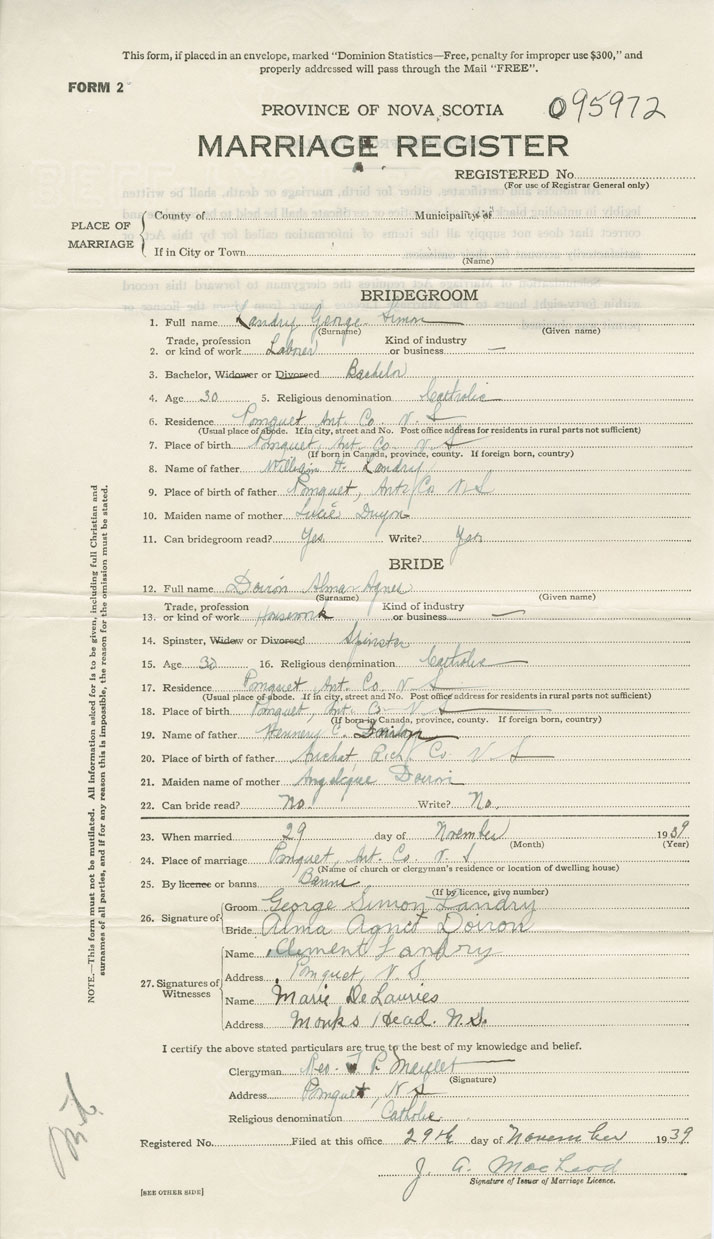 This form, if placed in an envelope, marked "Dominion Statistics—Free, penalty for improper use $300," and
properly addressed will pass through the Mail "FREE".
FORM 2
PROVINCE OF NOVA SCOTIA 095972
MARRIAGE REGISTER
REGISTERED No.
(For use of Registrar General only)
PLACE OF MARRIAGE
County of Municipality of
If in City or Town
(Name)
BRIDEGROOM
1. Full name Landry George Simon
(Surname) (Given name)
Trade, profession Kind of industry
2. or kind of work Laborer or business —
3. Bachelor, Widower or Divorced Bachelor
4. Age 30 5. Religious denomination Catholic
6. Residence Pomquet Ant. Co. N. S
(Usual place of abode. If in city, street and No. Post office address for residents in rural parts not sufficient)
7. Place of birth Pomquet, Ant. Co. N. S
(If born in Canada, province, county. If foreign born, country)
8. Name of father William H. Landry
9. Place of birth of father Pomquet, Ant. Co N. S
10. Maiden name of mother Lucie
11. Can bridegroom read? Yes Write? Yes
BRIDE
12. Full name Doiron Alma Agnes
(Surname) (Given name)
Trade, profession Kind of industry
13. or kind of work Housework or business —
14. Spinster, Widow or Divorced Spinster
15. Age 30 16. Religious denomination Catholic
17. Residence Pomquet Ant. Co N. S
(Usual place of abode. If in city, street and No. Post office address for residents in rural parts not sufficient)
18. Place of birth Pomquet, Ant. Co N. S
(If born in Canada, province, county. If foreign born, country)
19. Name of father Hennery C. Doiron
20. Place of birth of father Arichat Rich. Co N. S
21. Maiden name of mother Angelique Doiron
22. Can bride read? No. Write? No.
23. When married 29 day of November 1939
(Month) (Year)
24. Place of marriage Pomquet, Ant. Co. N. S.
(Name of church or clergyman's residence or location of dwelling house)
25. By licence or banns Banns
(If by licence, give number)
26. Signature of
Groom George Simon Landry
Bride Alma Agnes Doiron
27. Signatures of Witnesses
Name Clement Landry
Address Pomquet, N. S.
Name Marie DeLauries
Address Monks Head. N.S.
I certify the above stated particulars are true to the best of my knowledge and belief.
Clergyman Rev.
(Signature)
Address Pomquet, N S
Religious denomination Catholic
Registered No. Filed at this office 29th day of November 1939
J. A. MacLeod
Signature of Issuer of Marriage Licence.
[SEE OTHER SIDE]
NOTE.—This form must not be mutilated. All information asked for is to be given, including full Christian and
surnames of all parties, and if for any reason this is impossible, the reason for the omission must be stated.